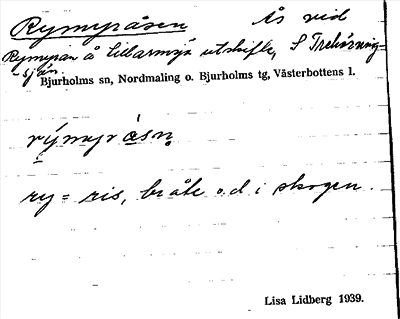 Rymyråsen Ås vid
Rymyran å Lillarmsjö utskifte, S Trehörning-
sjön.
Bjurholms sn, Nordmaling o. Bjurholms tg, Västerbottens l.
rýmyråsn̥
ry = ris, bråte o.d i skogen.
Lisa Lidberg 1939.